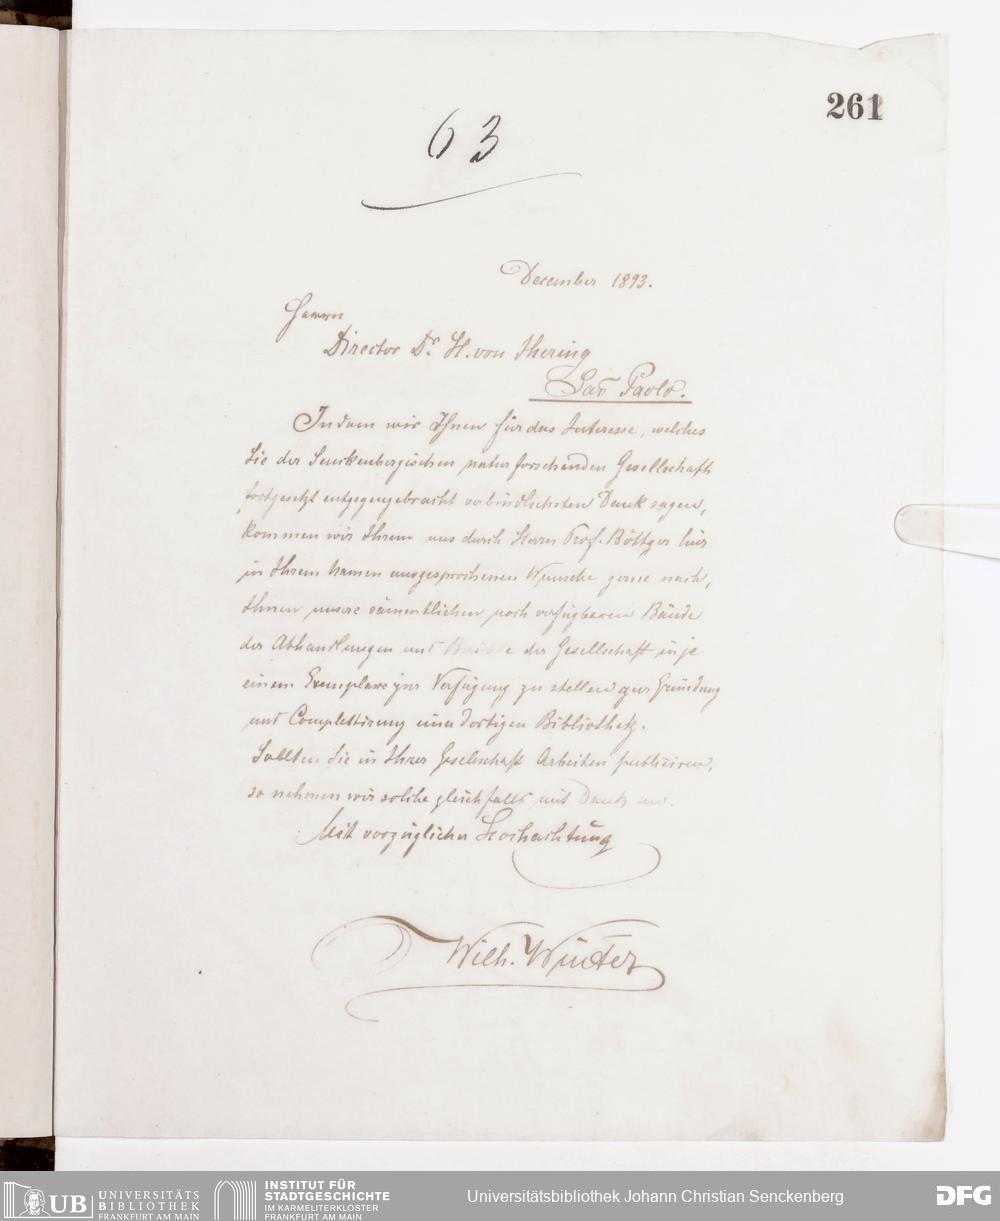 261
63
December 1893.
Herrn
Director Dr. H. von Ihering
Saõ Paolo.
Indem wir Ihnen für das Interesse, welches
Sie der Senckenbergischen naturforschenden Gesellschaft
fortgesetzt entgegengebracht verbindlichsten Dank sagen,
kommen wir Ihrem uns durch Herrn Prof. Böttger hier
in Ihrem Namen ausgesprochenen Wunsche gerne nach,
Ihnen unsere sämmtlichen noch verfügbaren Bände
der Abhandlungen und der Gesellschaft in je
einem Exemplare zur Verfügung zu stellen zur Gründung
und Complettirung einer dortigen Bibliothek.
Sollten Sie in Ihrer Gesellschaft Arbeiten publiciren,
so nehmen wir solche gleichfalls mit Dank an.
Mit vorzüglicher Hochachtung
Wilh. Winter
UB UNIVERSITÄTS
BIBLIOTHEK
FRANKFURT AM MAIN
INSTITUT FÜR
STADTGESCHICHTE
IM KARMELITERKLOSTER
FRANKFURT AM MAIN
Universitätsbibliothek Johann Christian Senckenberg
DFG